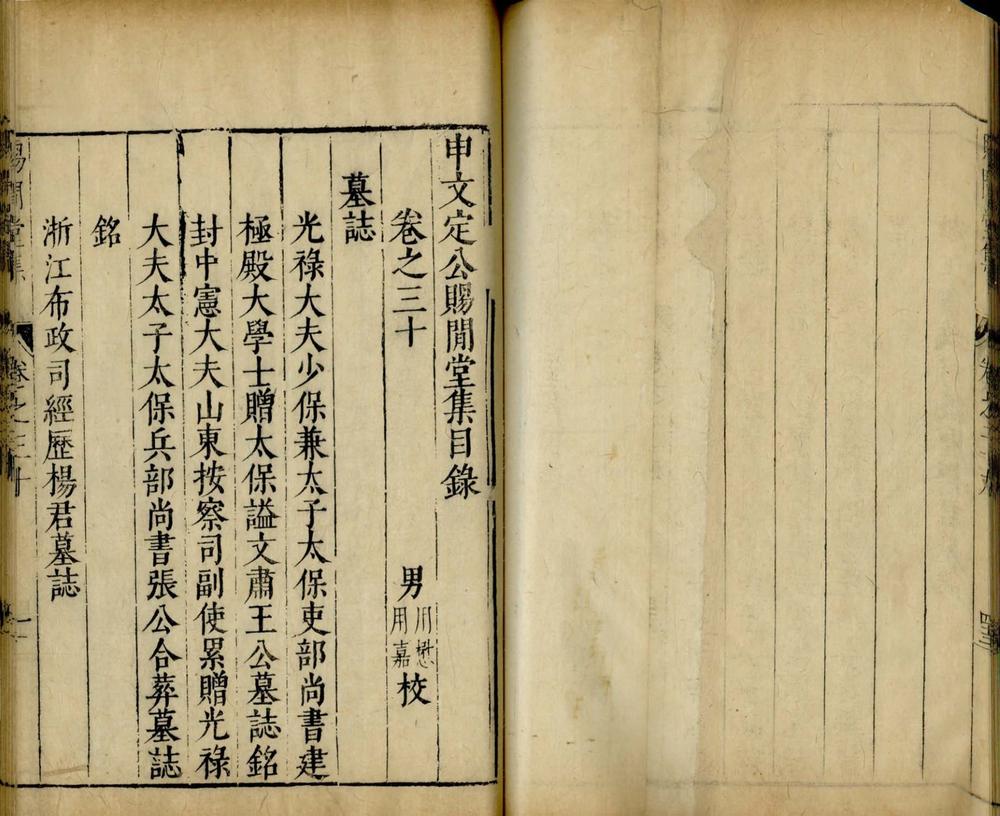 申文定公賜閒堂集目錄
卷之三十
男
用懋
用嘉
校
墓誌
光祿大夫少保兼太子太保吏部尚書建
極殿大學士贈太保謚文肅王公墓誌銘
封中憲大夫山東按察司副使累贈光祿
大夫太子太保兵部尚書張公合葬墓誌
銘
浙江布政司經歷楊君墓誌
賜閒堂集
卷之三十